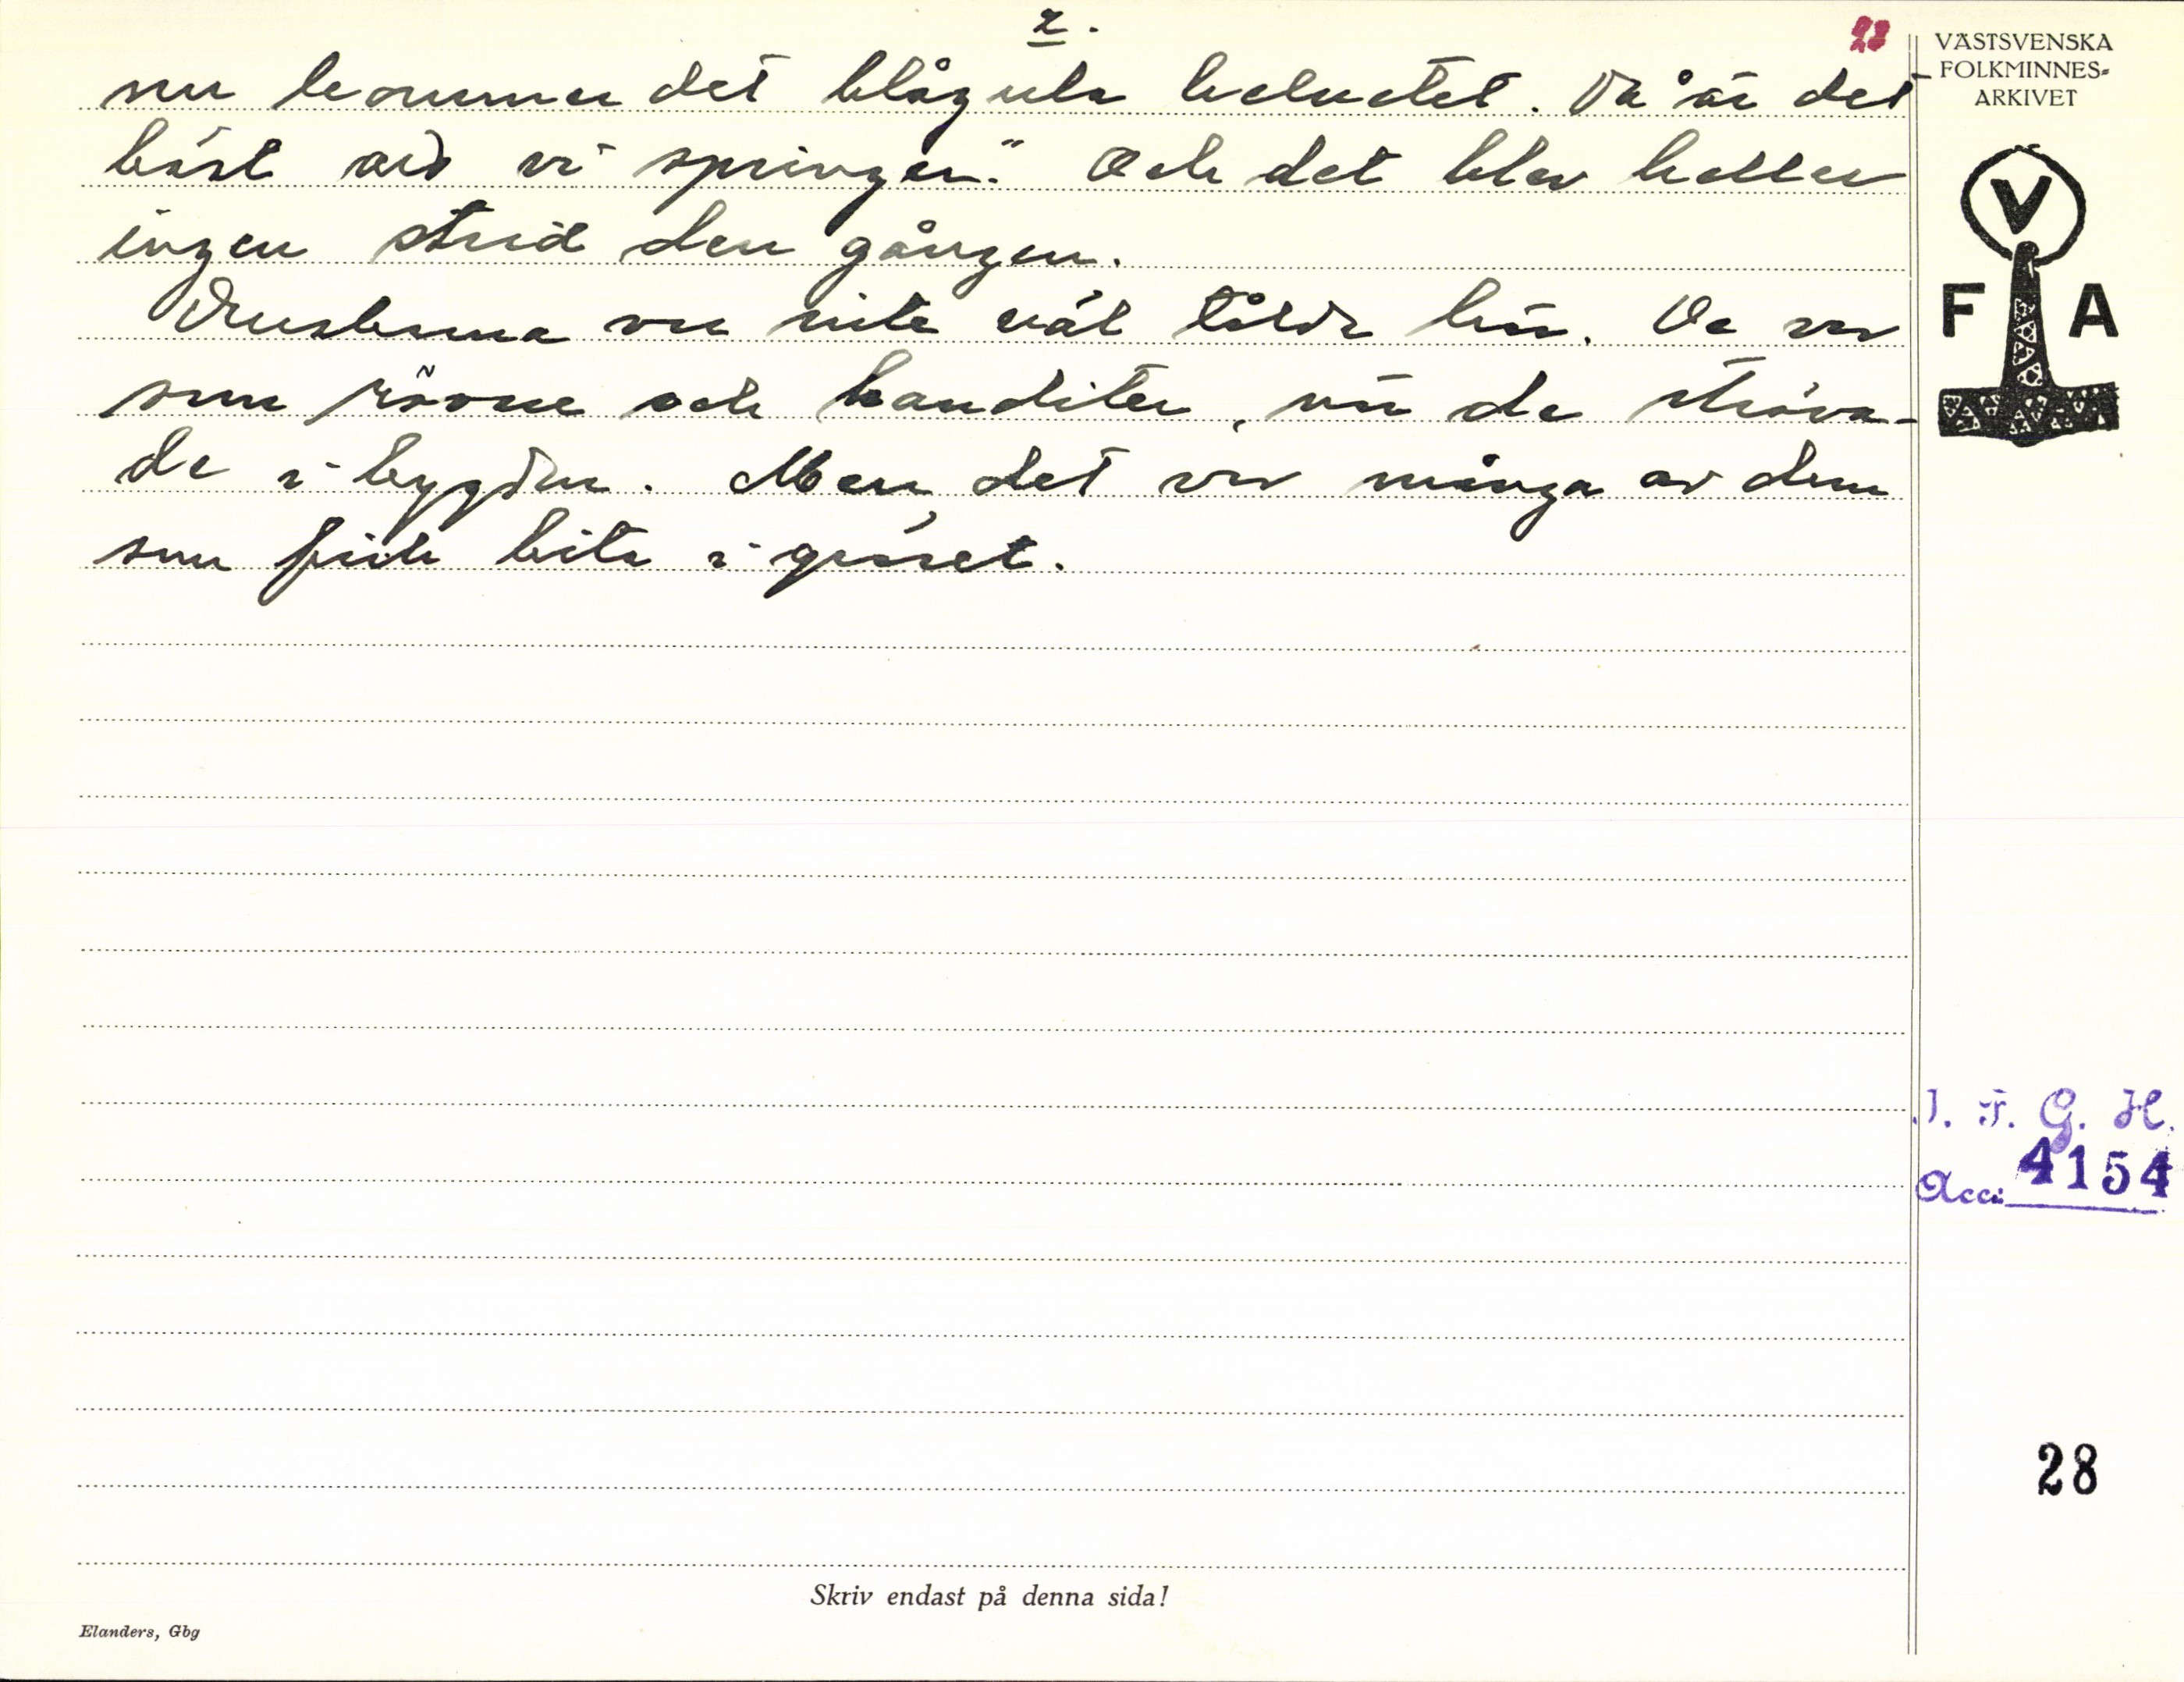 2.
28
nu kommer det blågula helvetet. Då är det
bäst att vi springer." Och det blev heller
ingen strid den gången.
Danskarna var inte väl tålda här. De var
som rövare och banditer, när de ströva-
de i bygden. Men det var många av dem
som fick bita i gräset.
VÄSTSVENSKA
FOLKMINNES-
ARKIVET
V
F A
I. F. G. H.
Acc: 4154
28
Skriv endast på denna sida!
Elanders, Gbg